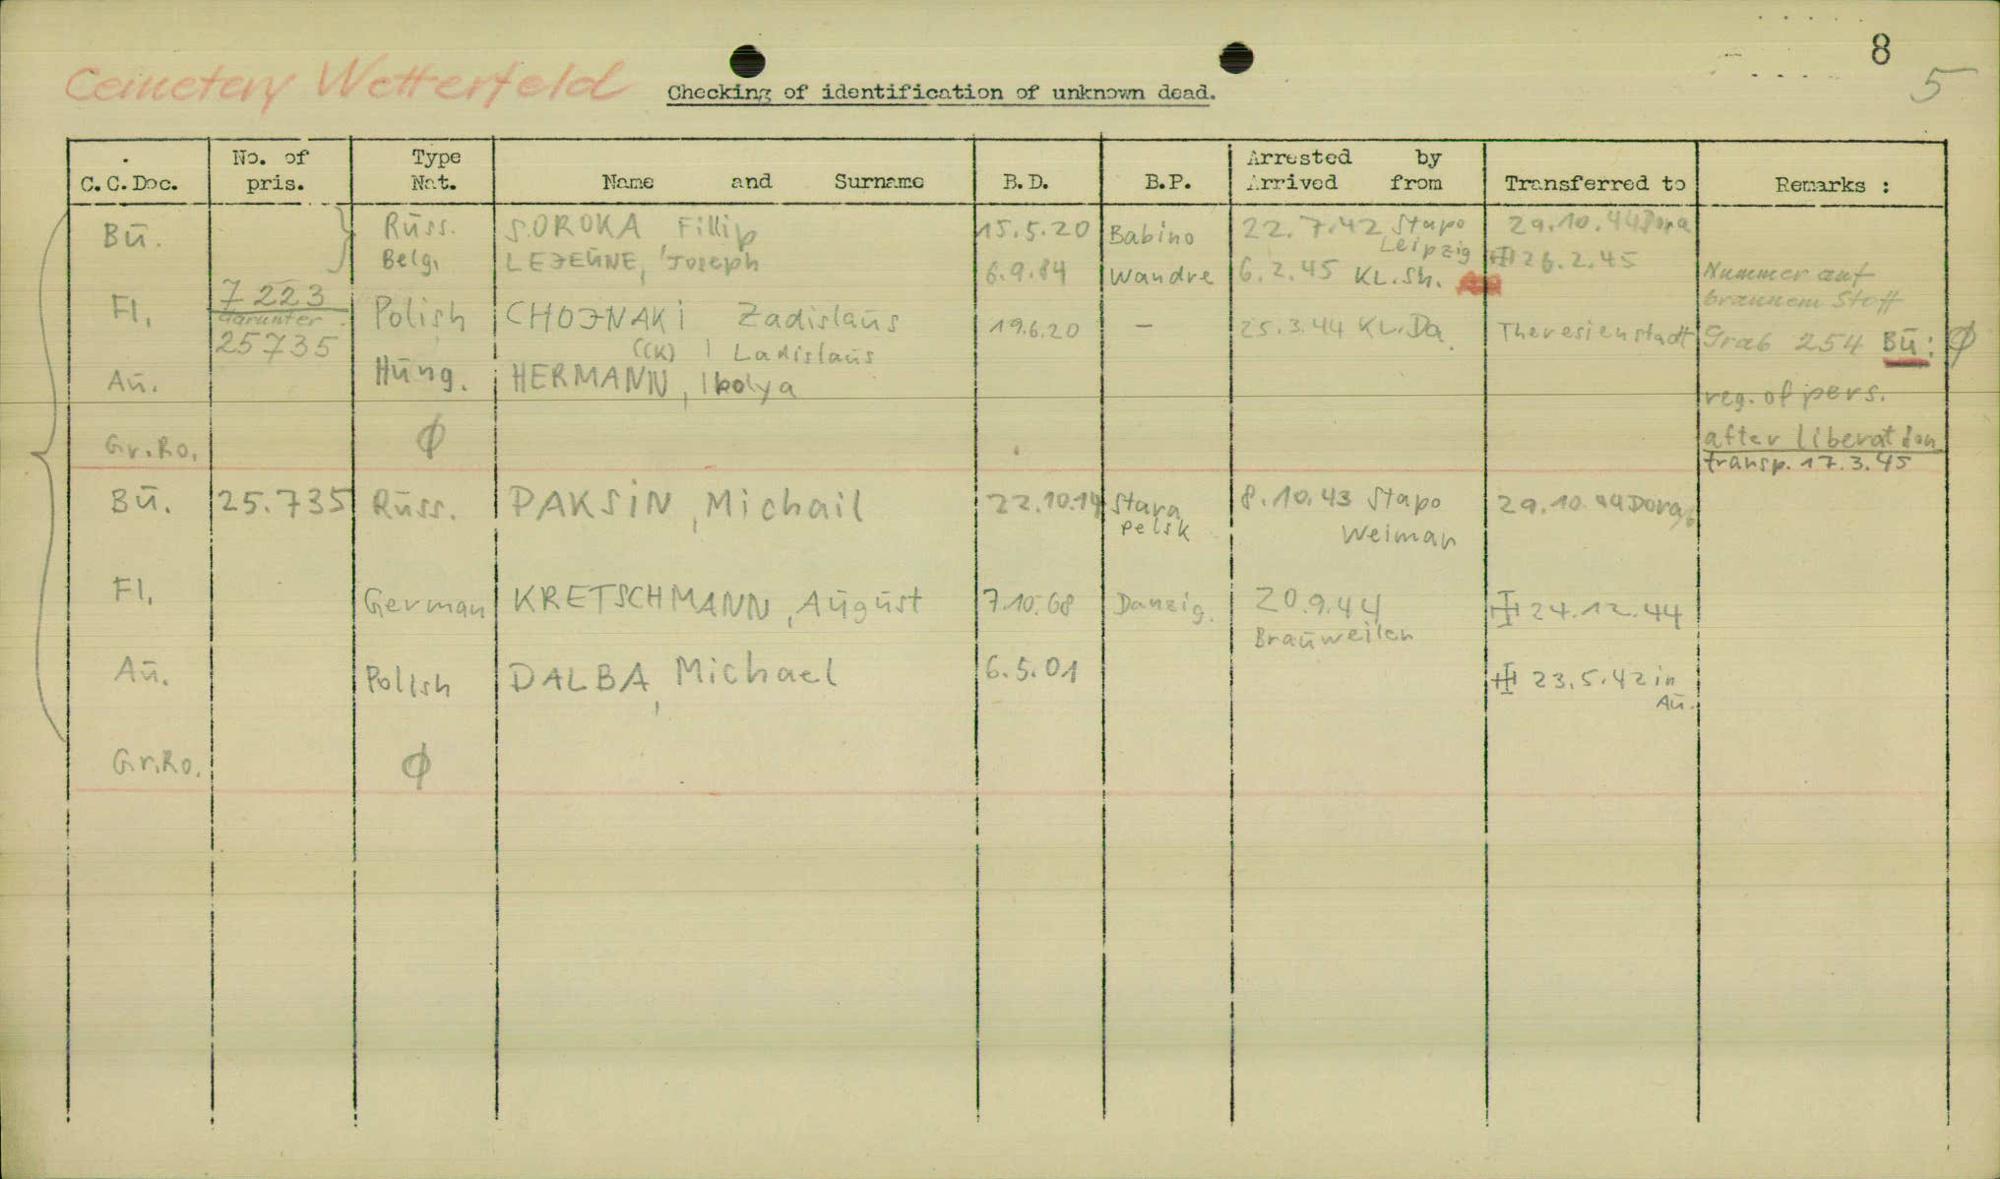 8
5
Cemetery Wetterfeld
Checking of identification of unknown dead.
C.C.Doc. No. of pris. Type Nat. Name and Surname B.D. B.P. Arrested by Arrived from Transferred to Remarks :
Bū. Rūss. SOROKA Fillip 15.5.20 Babino 22.7.42 Stapo Leipzig 29.10.44 Dora
Belg. LEJEŪNE, Joseph 6.9.84 Wandre 6.2.45 KL.Sh. 26.2.45
Nummer auf
braunem Stoff
Fl. 7223 Polish CHOJNAKi Zadislaūs 19.6.20 – 25.3.44 KL.Da. Theresienstadt Grab 254 Bū: Ø
darunter
25735 (CK) Ladislaūs
Aū. Hūng. HERMANN, Ibolya reg. of pers.
after liberation
Gr.Ro. Ø transp. 17.3.45
Bū. 25.735 Rūss. PAKSiN, Michail 22.10.14 Starapelsk 8.10.43 Stapo Weimar 29.10.44 Dora
Fl. German KRETSCHMANN, Aūgūst 7.10.68 Danzig. 20.9.44 24.12.44
Braūweiler
Aū. Polish DALBA, Michael 6.5.01 23.5.42 in
Aū.
Gr.Ro. Ø